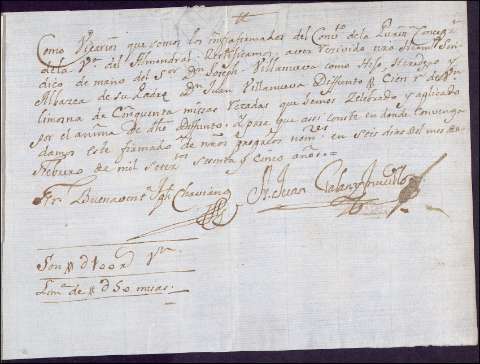 Como Vicarios que somos los infrafirmados del Conv.to de la Purissi.ma Concep.n
de la V.a del Almendral. Certificamos aver recivido nro. Sindico
dico de mano del S.or Dn Joseph Villanueva como Hijo, Heredero y
Albazea de su Padre Dn Juan Villanueva Diffunto Cien r.s de V.n
limosna de Cinquenta missas Rezadas que hemos Zelebrado y aplicado
por el anima de dho diffunto. Y para que assi conste en donde Convenga
damos este firmado de nros. nom.es en seis dias del mes de
Febrero de mil setez.tos sesenta y cinco años.
Fr. Buenaven.a Ig.o Chaviano
Fr. Juan
Son # d 100 r.s V.n
Lim.a de # d 50 misas.